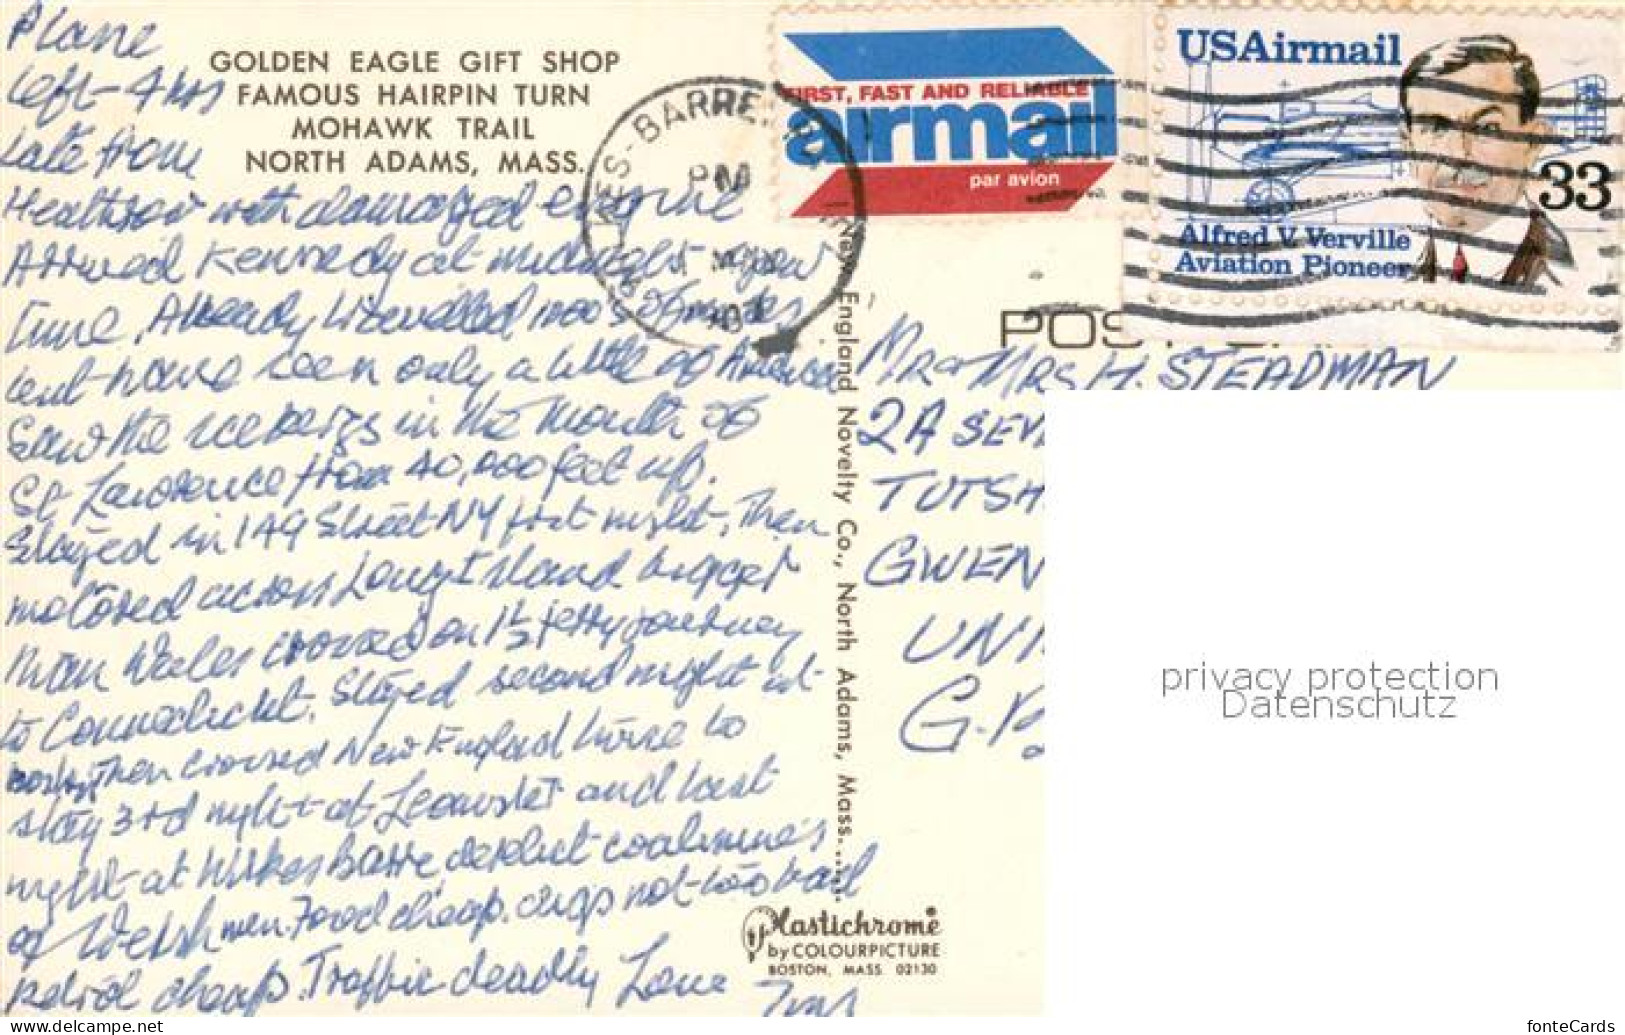 Plane
left - 4 hrs
late from
Heathrow with damaged engine
Arrived Kennedy at midnight your
time. Already travelled 1000s of miles
but have seen only a little of America
Saw the icebergs in the mouth of
St Lawrence from 40,000 feet up.
Stayed in 149 Street NY first night, then
motored across Long Island bigger
than Wales crossed on 1½ ferry journey
to Connecticut. Stayed second night at
then crossed New England to
stay 3rd night at Leomster and last
night at Wilkes Barre derelict coalmines
of Welshmen. Food cheap. cigs not too bad
petrol cheap. Traffic deadly Love
GOLDEN EAGLE GIFT SHOP
FAMOUS HAIRPIN TURN
MOHAWK TRAIL
NORTH ADAMS, MASS.
-BARRE
PM
FIRST, FAST AND RELIABLE
airmail
par avion
USAirmail
33
Alfred V. Verville
Aviation Pioneer
New England Novelty Co., North Adams, Mass.
POS
MR & MRS H. STEADMAN
2A SEV
TUTSH
GWEN
UNI
G.
privacy protection
Datenschutz
Plastichrome
by COLOURPICTURE
BOSTON, MASS. 02130
delcampe.net
fonteCards